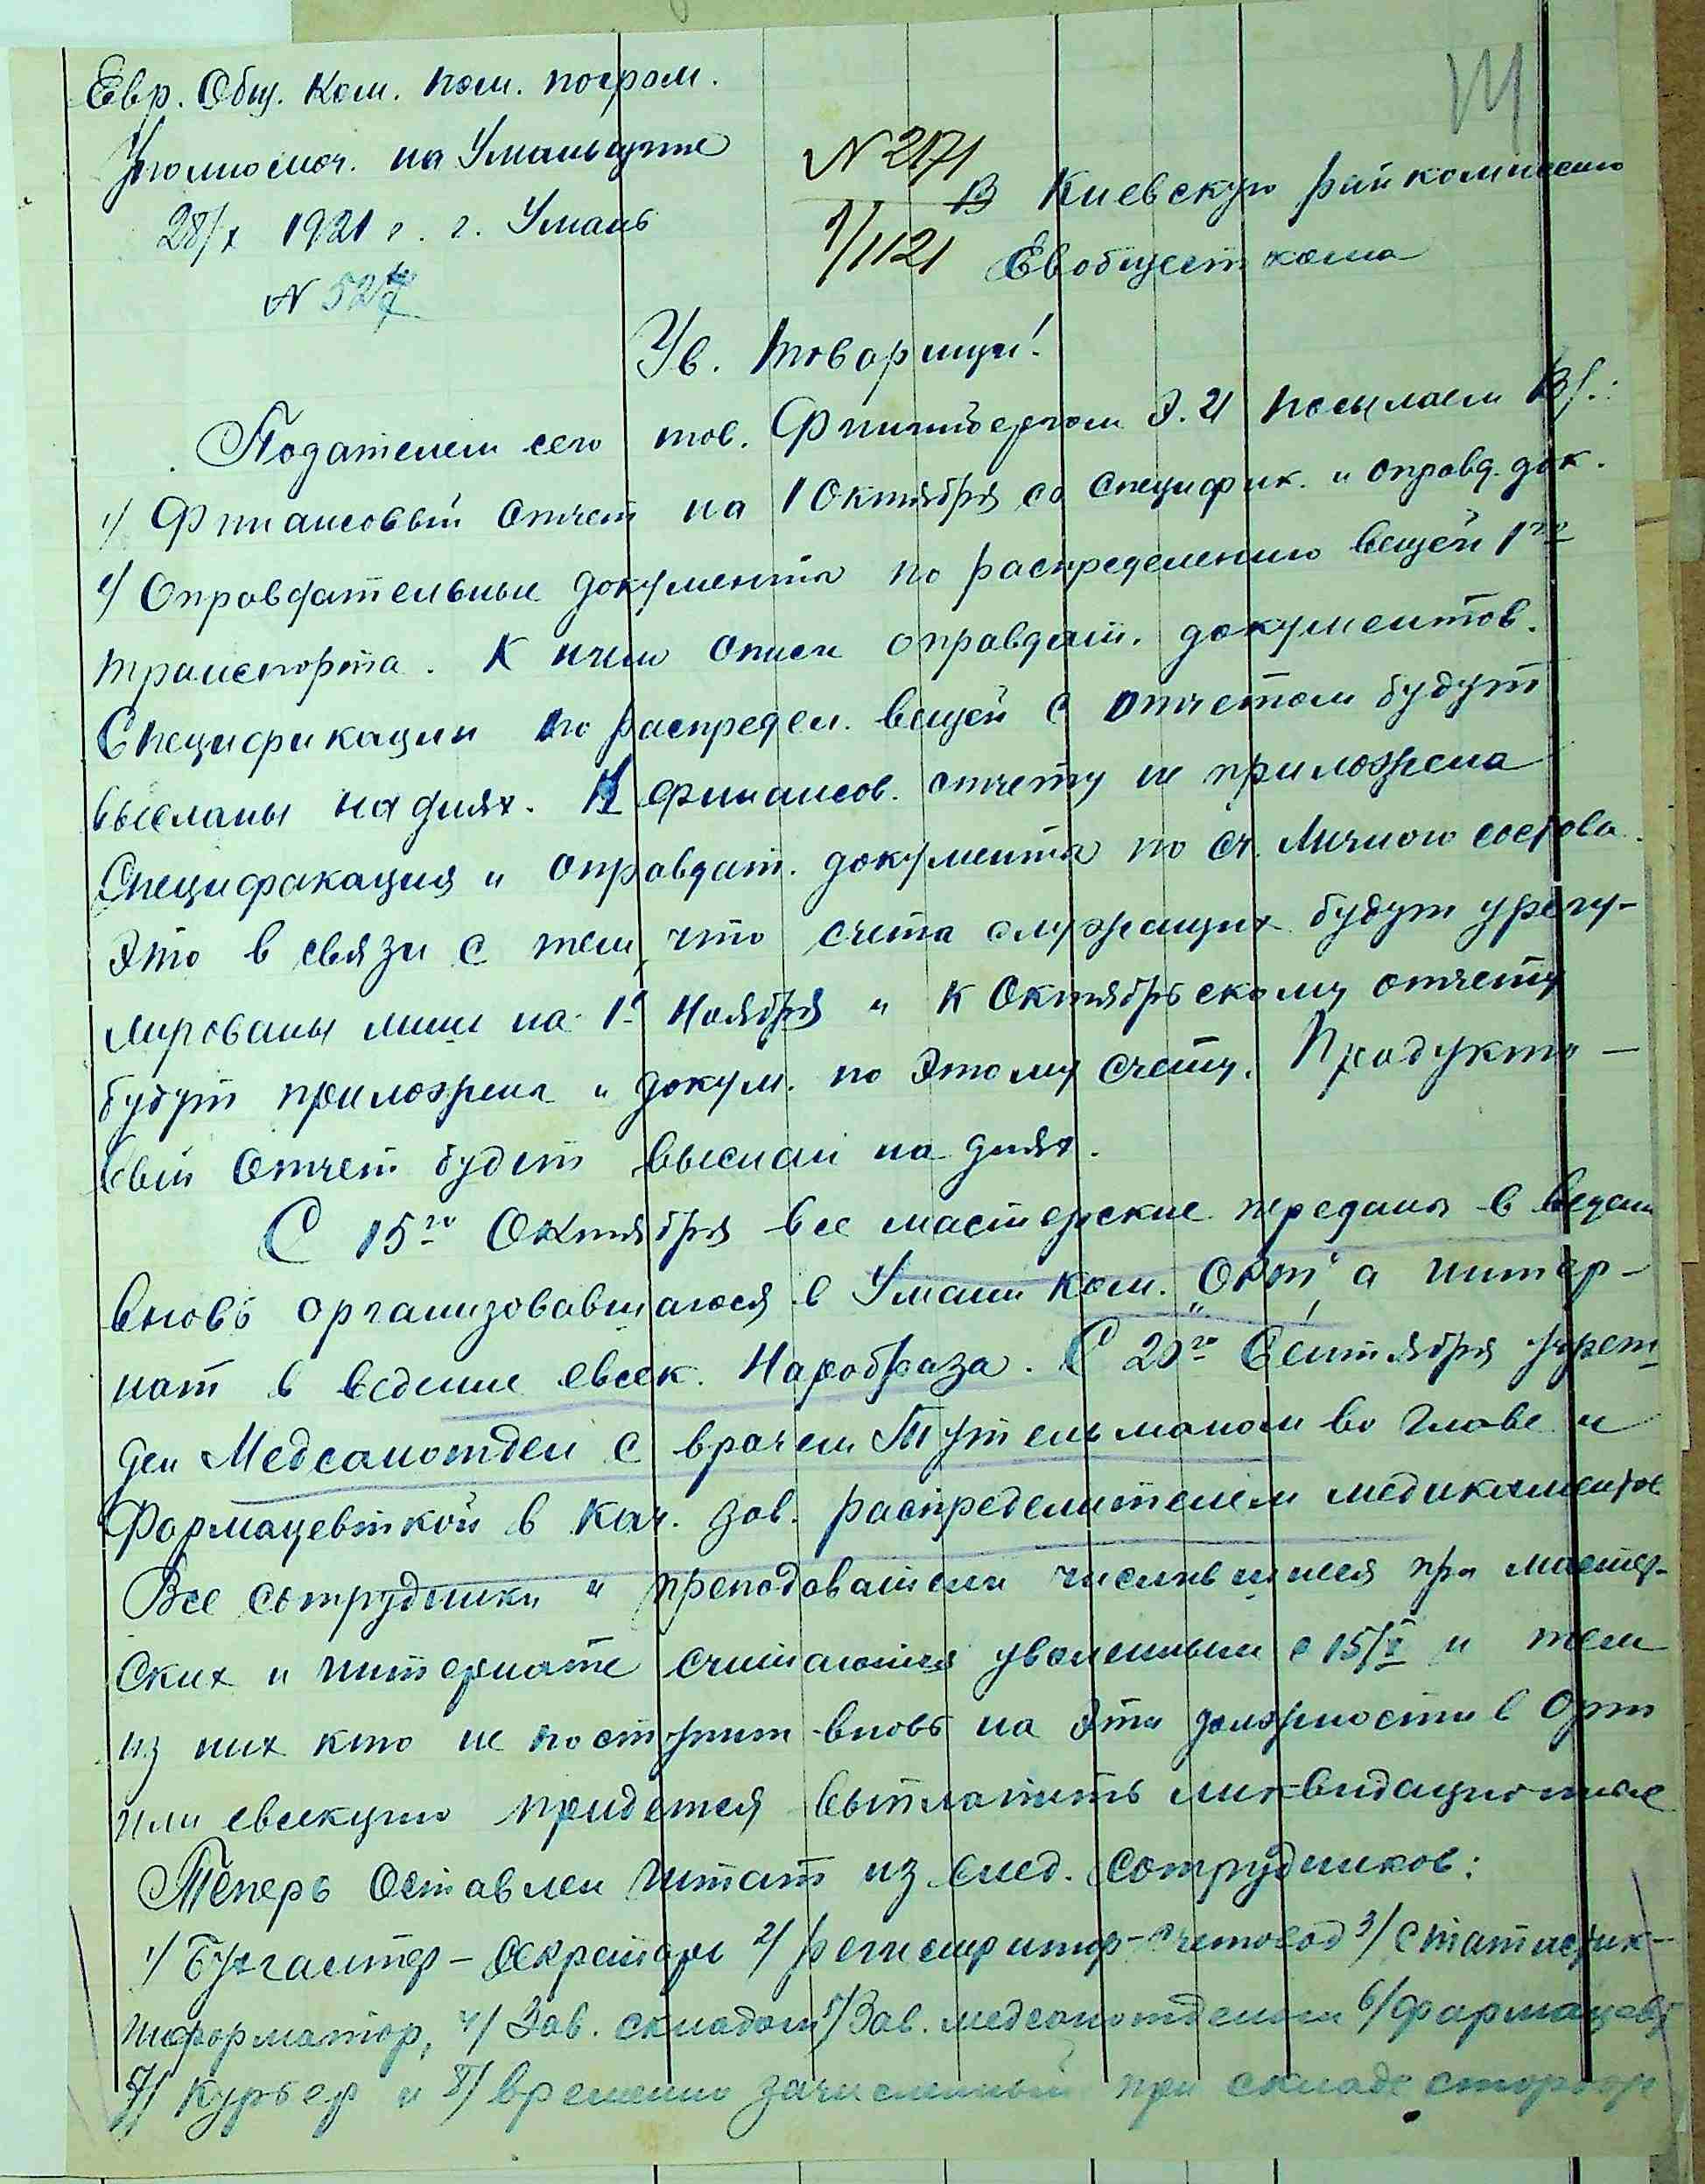 Евр. Общ. Ком. пом. погром.
Уполномоч. на Уманьщине
28/X 1921 г. г. Умань
N 527
N 2171
1/1121
В Киевскую райкомиссию
Евобщесткома
Ув. товарищи!
Подателем сего тов. посылаем
1/ Финансовый отчет на 1 Октября со специфик. и оправд. док.
2/ Оправдательные документы по распределению вещей 1го
транспорта. К ним описи оправдат. документов.
Спецификации по распредел. вещей с отчетом будут
высланы на днях. К финансов. отчету не приложена
Спецификация и оправдат. документы по сч. Личного состава.
Это в связи с тем, что счета служащих будут урегу-
лированы лишь на 1е Ноября и к Октябрьскому отчету
будут приложены и докум. по этому счету. Продукто-
вый отчет будет выслан на днях.
С 15го Октября все мастерские переданы в веден.
вновь организовавшагося в Умани Ком. „Орт", а интер-
нат в ведение евсек. Наробраза. С 20го Сентября учреж-
ден Медсанотдел с врачем Тутельманом во главе и
Фармацевткой в кач. зав. распределителем медикаментов
Все сотрудники и преподаватели числившиеся при мастер-
ских и интернате считаются уволенными с 15/X и тем
из них кто не поступит вновь на эти должности в Орт
или евсекцию придется выплатить ликвидационные
Теперь оставлен штат из след. сотрудников:
1/ Бухгалтер-секретарь 2/ регистратор-счетовод 3/ статистик-
информатор, 4/ Зав. складом 5/ Зав. медсанотделом 6/ фармацевт
7/ курьер и 8/ временно зачисленный при складе сторож